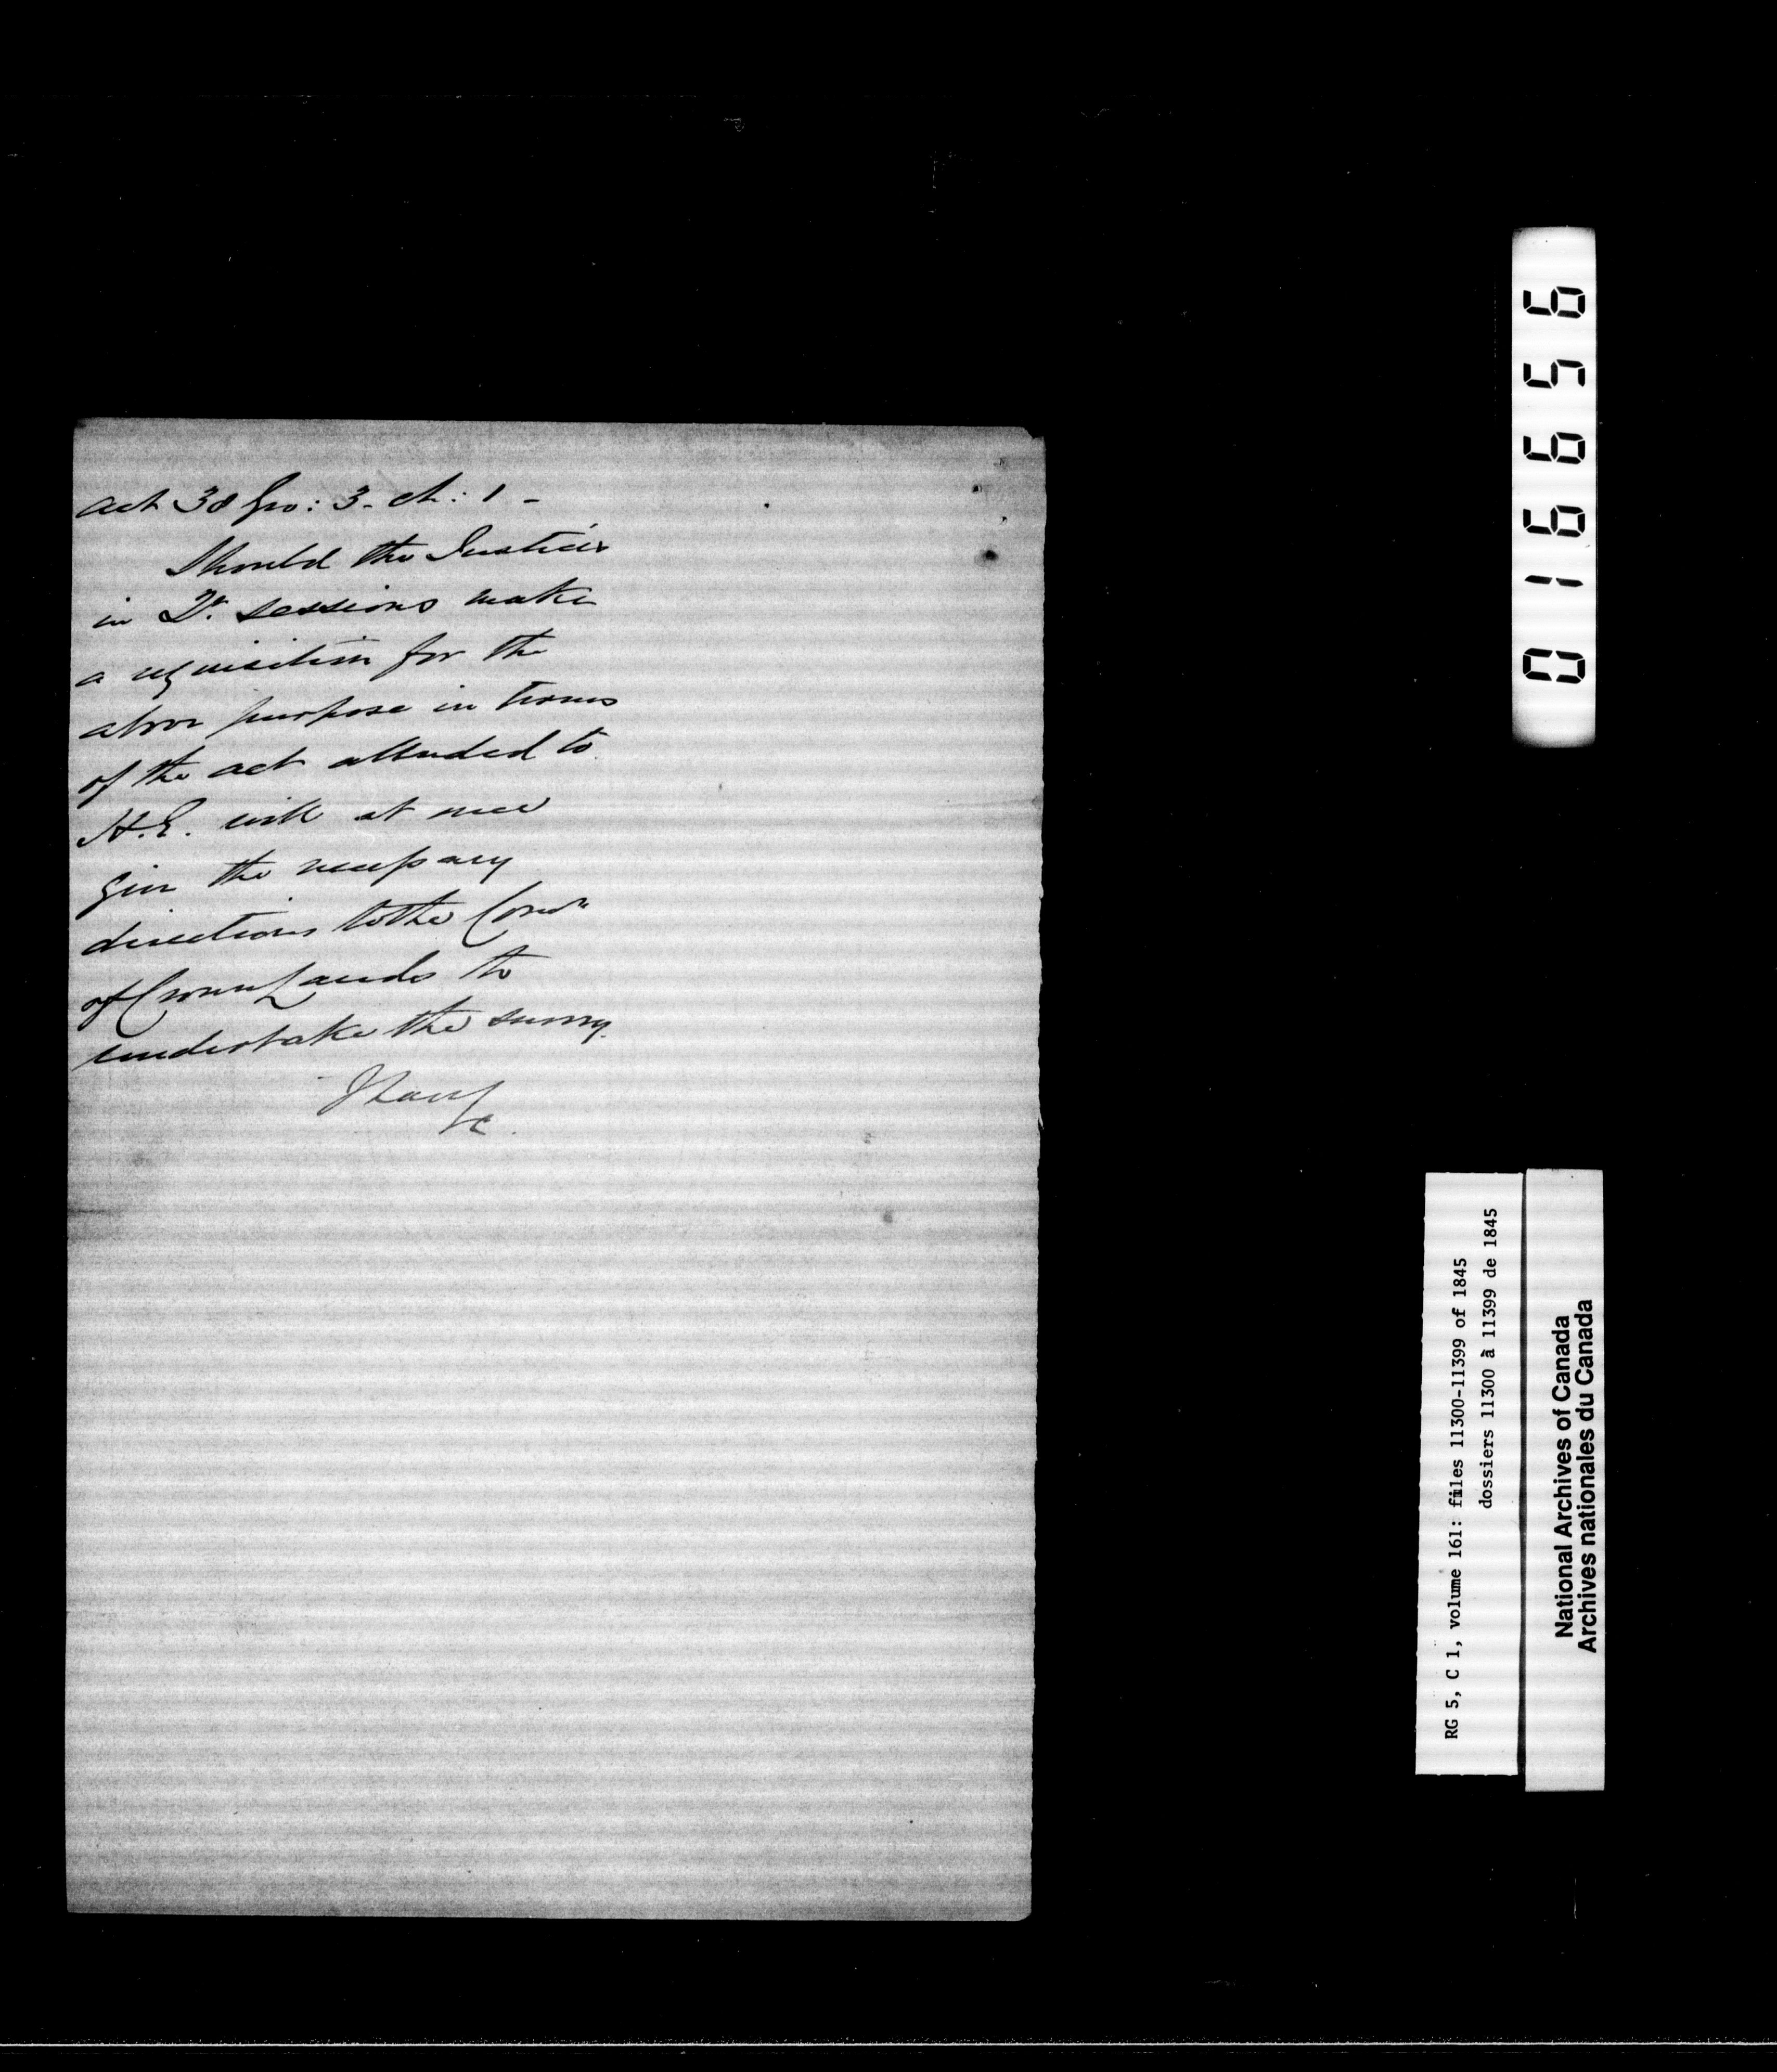 Act 38 Geo: 3. ch: 1 -
Should the Justices
in Qr. sessions make
a requisition for the
above purpose in terms
of the act alluded to
H.E. will at once
give the necessary
directions to the Comr
of Crown Lands to
undertake the survey.
016656
RG 5, C 1, volume 161: files 11300-11399 of 1845
dossiers 11300 à 11399 de 1845
National Archives of Canada
Archives nationales du Canada